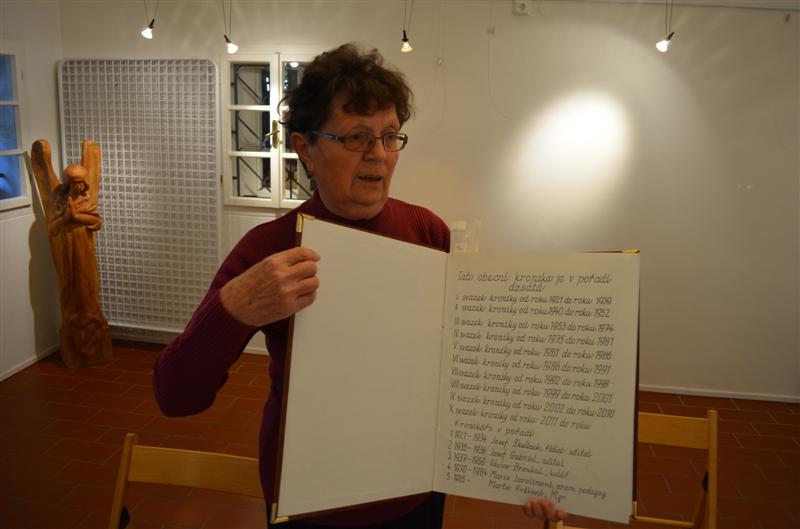 Tato obecní kronika je v pořadí
desátá
I. svazek kroniky od roku 1921 do roku 1939
II. svazek kroniky od roku 1940 do roku 1952
III. svazek kroniky od roku 1953 do roku 1974
IV. svazek kroniky od roku 1975 do roku 1981
V. svazek kroniky od roku 1981 do roku 1986
VI. svazek kroniky od roku 1986 do roku 1991
VII. svazek kroniky od roku 1992 do roku 1998
VIII. svazek kroniky od roku 1999 do roku 2001
IX. svazek kroniky od roku 2002 do roku 2010
X. svazek kroniky od roku 2011 do roku
Kronikáři v pořadí
1. 1921 - 1934 Josef učitel
2. 1935 - 1936 Josef Gabriel, učitel
3. 1937 - 1969 Václav
4. 1970 - 1984 Marie
5. 1985 - Marie Mgr.